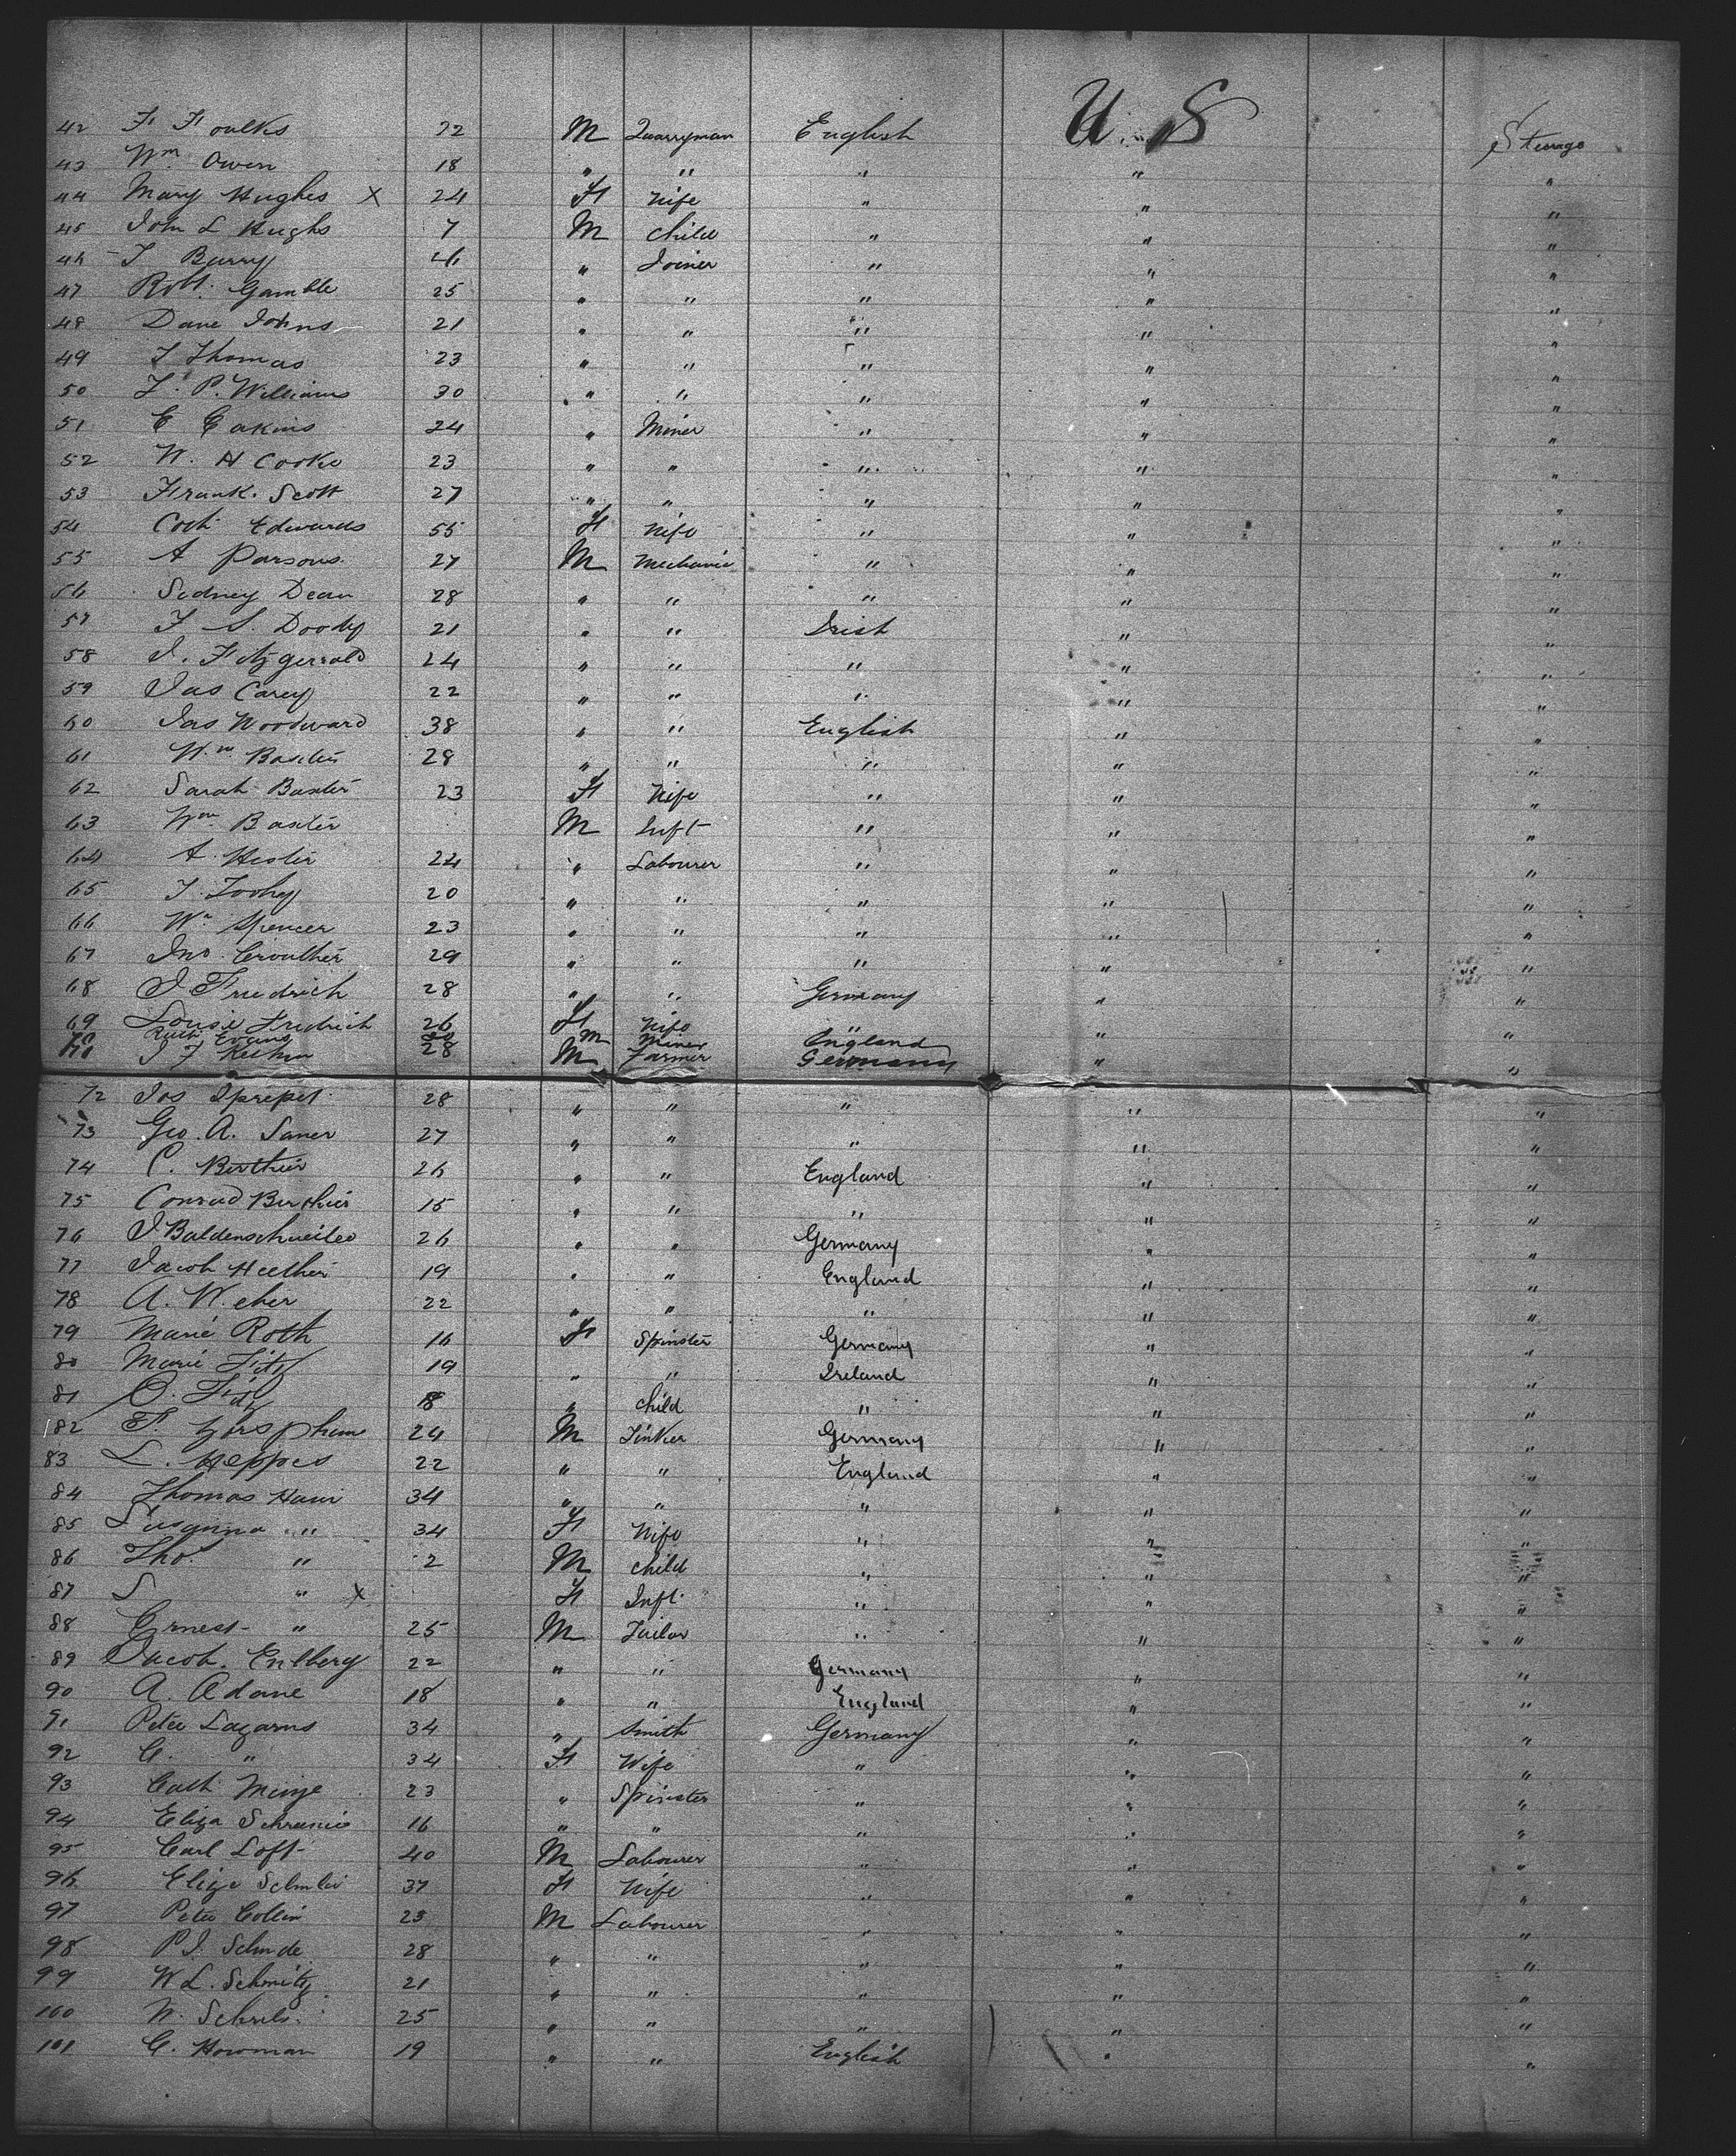 42 F Foulks 22 M Quarryman English U.S Steerage
43 Wm Owen 18 " " " " "
44 Mary Hughes X 24 F Wife " " "
45 John L Hughs 7 M Child " " "
46 J Burry 46 " Joiner " " "
47 Robt. Gamble 25 " " " " "
48 Dave Johns 21 " " " " "
49 J Thomas 23 " " " " "
50 J. P. Williams 30 " " " " "
51 E Eakins 24 " Miner " " "
52 W. H Cooke 23 " " " " "
53 Frank. Scott 27 " " " " "
54 Cath Edwards 55 F Wife " " "
55 A Parsons 27 M Mechanic " " "
56 Sidney Dean 28 " " " " "
57 J S. Doody 21 " " Irish " "
58 J. Fitzgerrald 24 " " " " "
59 Jas Carey 22 " " " " "
60 Jas Woodward 38 " " English " "
61 Wm Baxter 28 " " " " "
62 Sarah Baxter 23 F Wife " " "
63 Wm Baxter M Inft " " "
64 A. Hester 24 " Labourer " " "
65 J. Toohey 20 " " " " "
66 Wm Spencer 23 " " " " "
67 Jno. Crouther 29 " " " " "
68 J Friedrich 28 " " Germany " "
69 Louise Fredrich 26 F Wife " " "
70 Evans M Miner England
71 J F 28 M Farmer Germany " "
72 Jos 28 " " " " "
73 Geo. A. Saner 27 " " " " "
74 C. Berthier 26 " " England " "
75 Conrad Berthier 15 " " " " "
76 J Baldenschweiler 26 " " Germany " "
77 Jacob 19 " " England " "
78 A. Weher 22 " " " " "
79 Marie Roth 16 F Spinster Germany " "
80 Marie Fitz 19 " " Ireland " "
81 O. Fitz 8 " Child " " "
82 F. 24 M Tinker Germany " "
83 L. Heppes 22 " " England " "
84 Thomas Hawi 34 " " " " "
85 Susanna " 34 F Wife " " "
86 Tho. " 2 M Child " " "
87 S " X F Inft. " " "
88 Ernest " 25 M Tailor " " "
89 Jacob. Entberg 22 " " Germany " "
90 A. Adane 18 " " England " "
91 Peter Lazarus 34 " Smith Germany " "
92 C. " 34 F Wife " " "
93 Cath Minge 23 " Spinster " " "
94 Eliza 16 " " " " "
95 Carl Loft 40 M Labourer " " "
96 Elize 37 F Wife " " "
97 Peter Collin 23 M Labourer " " "
98 P J. Schnde 28 " " " " "
99 W L. Schmitz 21 " " " " "
100 W. 25 " " " " "
101 G. Howman 19 " " English " "